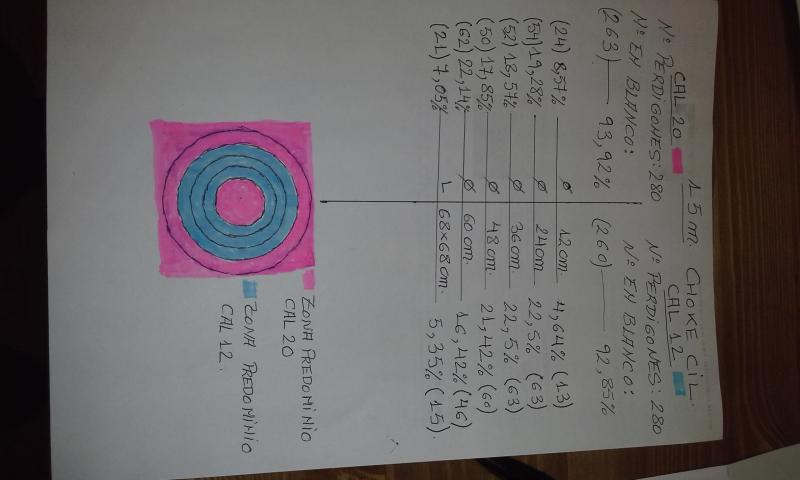 15 m. CHOKE CIL.
CAL 20 CAL 12
Nº PERDIGONES: 280 Nº PERDIGONES: 280
Nº EN BLANCO: Nº EN BLANCO:
(263) — 93,92% (260) — 92,85%
(24) 8,57% — Ø 12cm. 4,64% (13)
(54) 19,28% — Ø 24cm. 22,5% (63)
(52) 18,57% — Ø 36cm. 22,5% (63)
(50) 17,85% — Ø 48cm. 21,42% (60)
(62) 22,14% — Ø 60cm. 16,42% (46)
(21) 7,05% — L 68x68cm. 5,35% (15).
ZONA PREDOMINIO
CAL 20
ZONA PREDOMINIO
CAL 12.